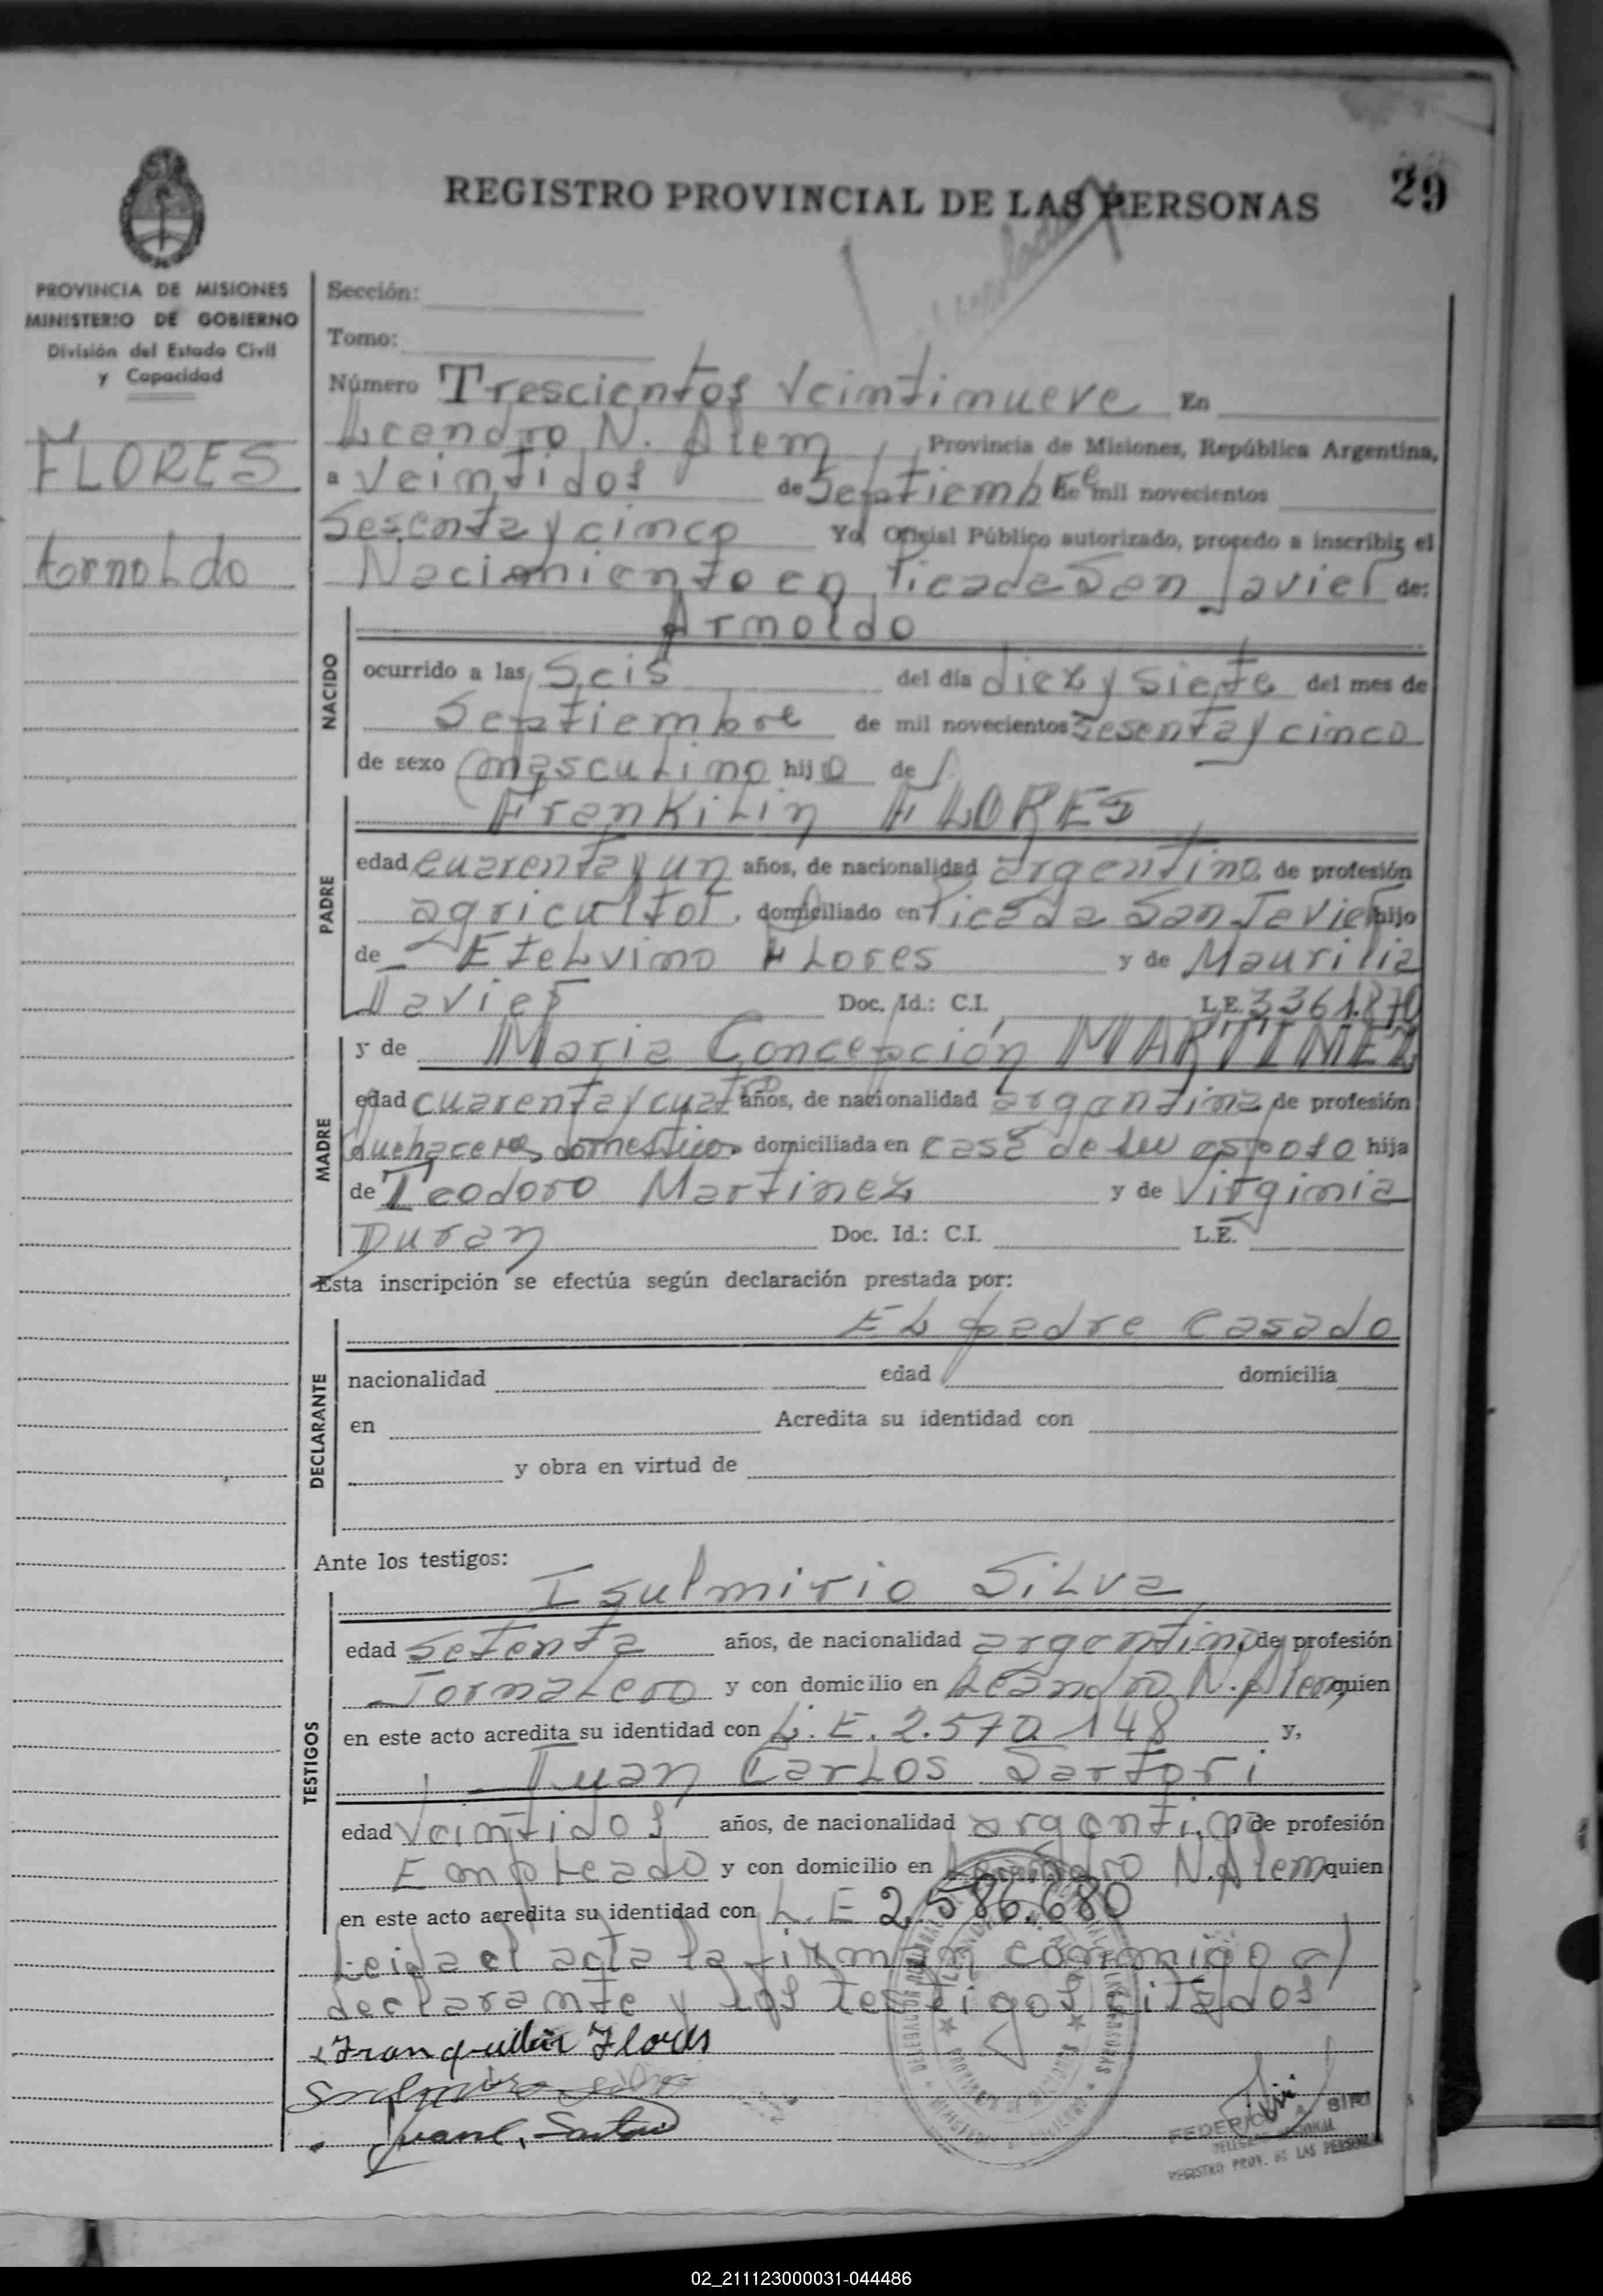 REGISTRO PROVINCIAL DE LAS PERSONAS
29
PROVINCIA DE MISIONES
MINISTERIO DE GOBIERNO
División del Estado Civil
y Capacidad
FLORES
Arnoldo
Sección:
Tomo:
Número Trescientos Veintinueve En
Leandro N. Alem, Provincia de Misiones, República Argentina,
a Veintidos de Septiembre de mil novecientos
Sesenta y cinco Yo, Oficial Público autorizado, procedo a inscribir el
Nacimiento en Picada San Javier de:
NACIDO
Arnoldo
ocurrido a las Seis del día diez y siete del mes de
Septiembre de mil novecientos Sesenta y cinco
de sexo masculino hijo de
PADRE
Frankilin FLORES
edad cuarenta y un años, de nacionalidad argentino de profesión
agricultor, domiciliado en Picada San Javier hijo
de Etelvino Flores y de Maurilia
Javier Doc. Id.: C.I. L.E. 3361.870
MADRE
y de Maria Concepción MARTINEZ
edad cuarenta y cuatro años, de nacionalidad argentina de profesión
Quehaceres domesticos domiciliada en casa de su esposo hija
de Teodoro Martinez y de Virginia
Duran Doc. Id.: C.I. L.E.
Esta inscripción se efectúa según declaración prestada por:
DECLARANTE
El padre Casado
nacionalidad edad domicilia
en Acredita su identidad con
y obra en virtud de
Ante los testigos:
TESTIGOS
Isulmirio Silva
edad Setenta años, de nacionalidad argentino de profesión
Jornalero y con domicilio en Leandro N. Alem quien
en este acto acredita su identidad con L. E. 2.570.148 y,
Juan Carlos Sartori
edad Veintidos años, de nacionalidad argentino de profesión
Empleado y con domicilio en Leandro N. Alem quien
en este acto acredita su identidad con L. E 2.586.680
Leida el acta la firman conmigo el
declarante y los testigos citados
Franquilin Flores
Juan C. Sartori
FEDERICO A. SIRI
REGISTRO PROV. DE LAS PERSONAS
02_211123000031-044486